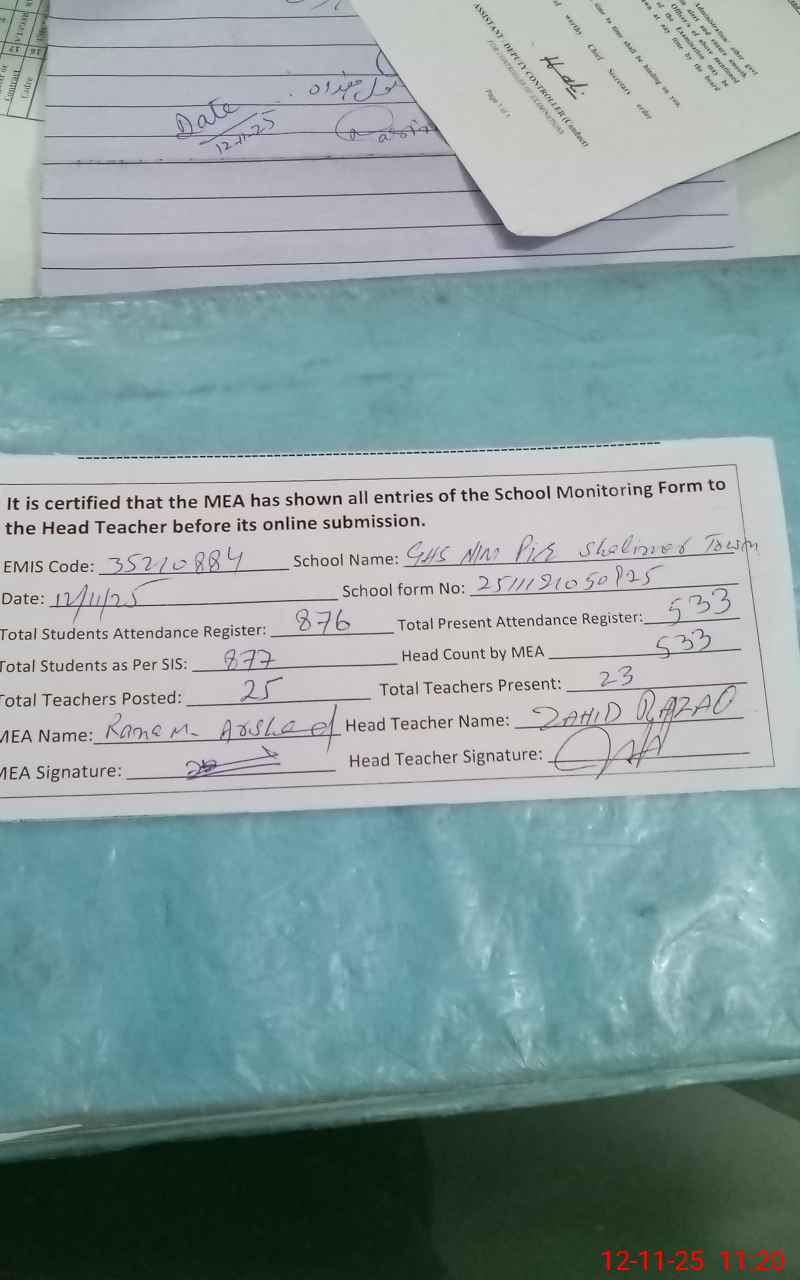 Date
12-11-25
time to time shall be binding on you.
of worthy Chief Secretary order
ASSISTANT/ DEPUTY CONTROLLER (Conduct)
FOR CONTROLLER OF EXAMINATIONS
Page 1 of 1
It is certified that the MEA has shown all entries of the School Monitoring Form to
the Head Teacher before its online submission.
EMIS Code: 35210884 School Name: GHS Shalimar Town
Date: 12/11/25 School form No: 2511121050825
Total Students Attendance Register: 876 Total Present Attendance Register: 533
Total Students as Per SIS: 877 Head Count by MEA 533
Total Teachers Posted: 25 Total Teachers Present: 23
MEA Name: Rana M. Arshad Head Teacher Name: ZAHID RAZAQ
MEA Signature: Head Teacher Signature:
12-11-25 11:20